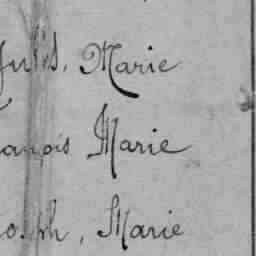 Jules, Marie
ançois Marie
oseph, Marie